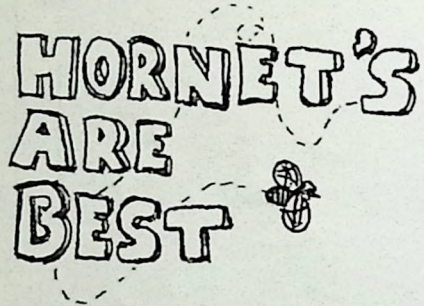 HORNET'S
ARE
BEST